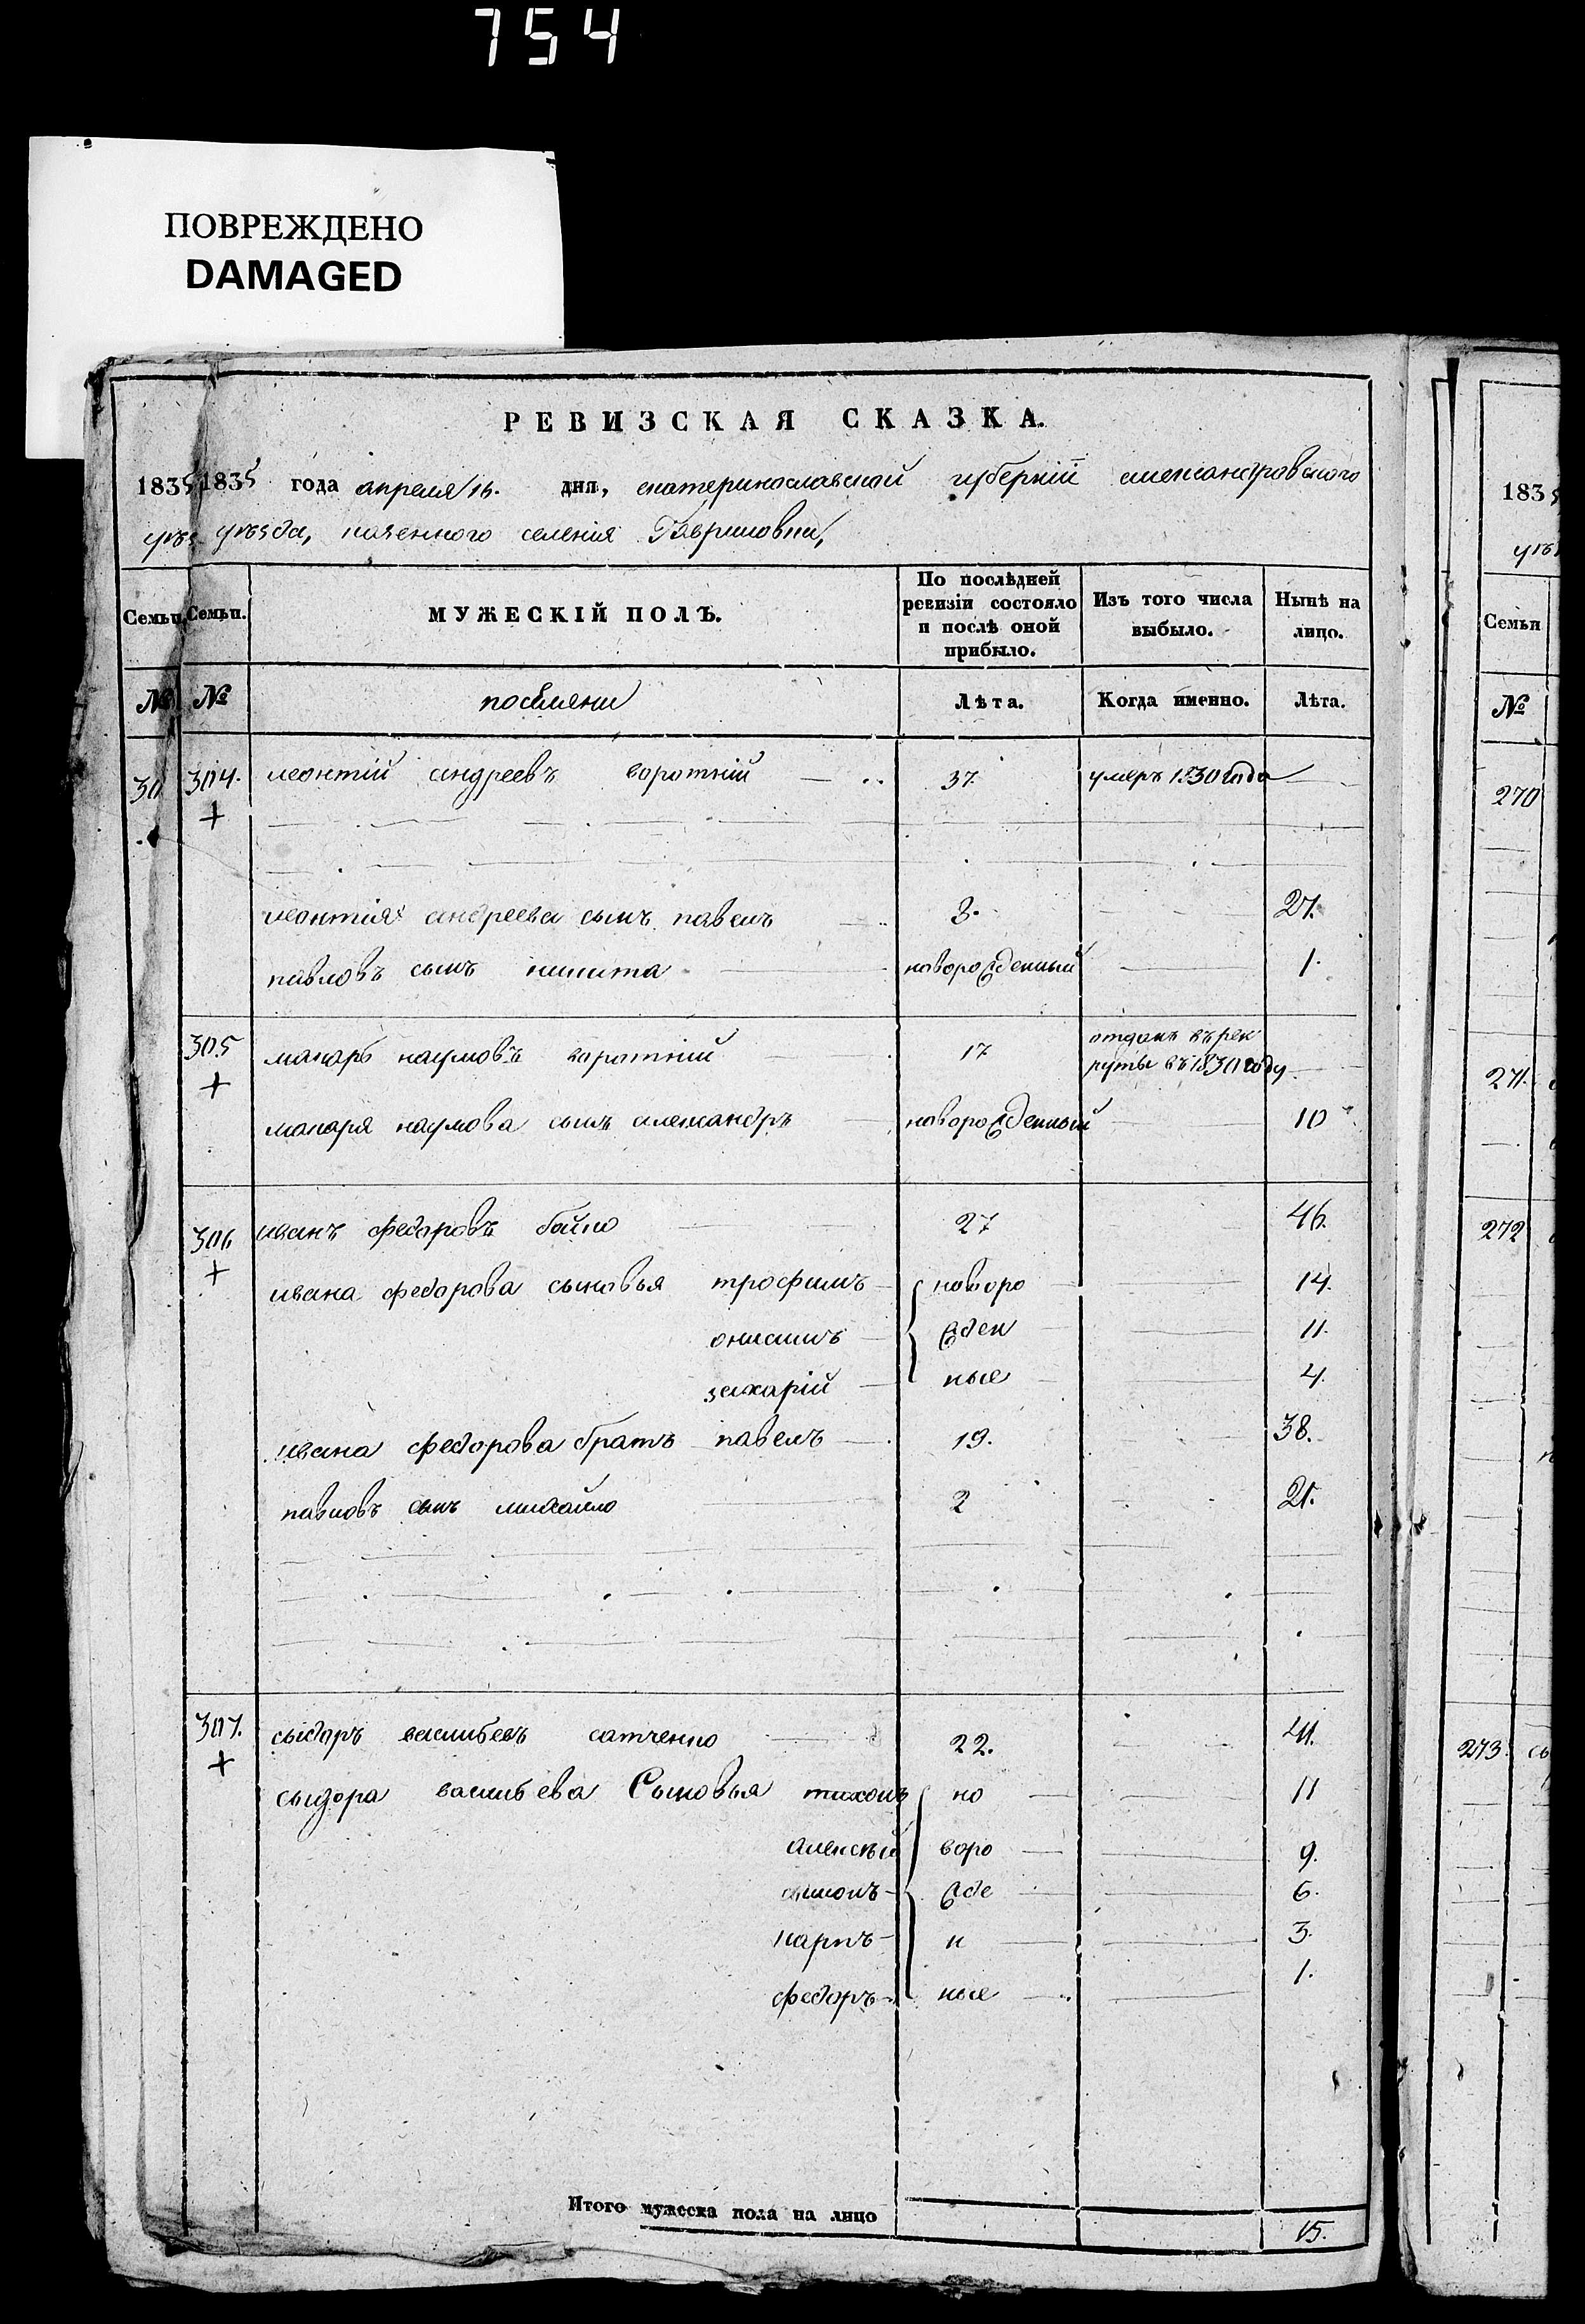 754
ПОВРЕЖДЕНО
DAMAGED
РЕВИЗСКАЯ СКАЗКА.
1835 1835 года апреля 16. дня, екатеринославской губерніи александровского
уѣз уѣзда, казенного селенія Гавриловки,
Семьи Семьи. МУЖЕСКІЙ ПОЛЪ. По послѣдней ревизіи состояло и послѣ оной прибыло. Изъ того числа выбыло. Нынѣ на лицо.
№ № поселяни Лѣта. Когда именно. Лѣта.
30 304. леонтій андреевъ короткій 37 умеръ 1830 года
+
леонтія андреева сынъ павелъ 8. 27.
павловъ сынъ никита новорожденный 1.
305 макаръ наумовъ короткій 17 отданъ въ рек
руты въ 1830 году
+
макаря наумова сынъ александръ новорожденный 10
306 иванъ федоровъ бойко 27 46.
+
ивана федорова сыновья трофимъ новоро 14.
онисимъ жден 11.
захарій ные 4.
ивана федорова братъ павелъ 19. 38.
павловъ сынъ михайло 2 21.
307. сыдоръ васильевъ сатченко 22. 41.
+
сыдора васильева Сыновья тихонъ но 11
алексѣй воро 9.
симонъ жде 6.
карпъ н 3.
федоръ ные 1.
Итого мужеска пола на лицо 15.
1835
уѣз
Семьи
№
270
271.
272
273.